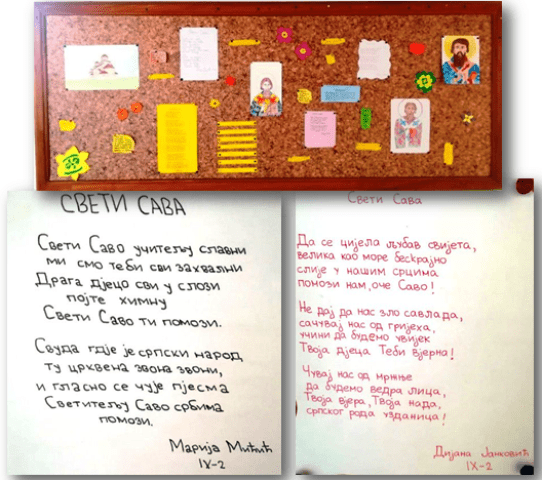 СВЕТИ САВА
Свети Саво учитељу славни
ми смо теби сви захвални
Драга дјецо сви у слози
појте химну
Свети Саво ти помози.
Свуда гдје је српски народ
ту црквена звона звони,
и гласно се чује пјесма
Светитељу Саво србима
помози.
Марија Мићић
IX-2
Свети Сава
Да се цијела љубав свијета,
велика као море бескрајно
слије у нашим срцима
помози нам, оче Саво!
Не дај да нас зло савлада,
сачувај нас од гријеха,
учини да будемо увијек
Твоја дјеца Теби вјерна!
Чувај нас од мржње
да будемо ведра лица,
Твоја вјера, Твоја нада,
српског рода уздница!
Дијана Јанковић
IX-2